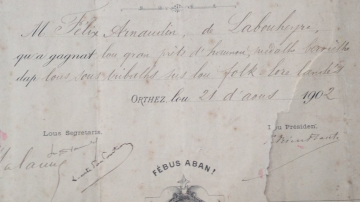 M. Félix Arnaudin, de Labouheyre,
qu'a gagnat lou gran prêts d'haunou, medalhe bermelhe
dap lous sous tribalhs sus lou folk-lore landés
ORTHEZ, lou 21 d'aous 1902
Lous Segretaris, Lou Presiden,
FÉBUS ABAN!